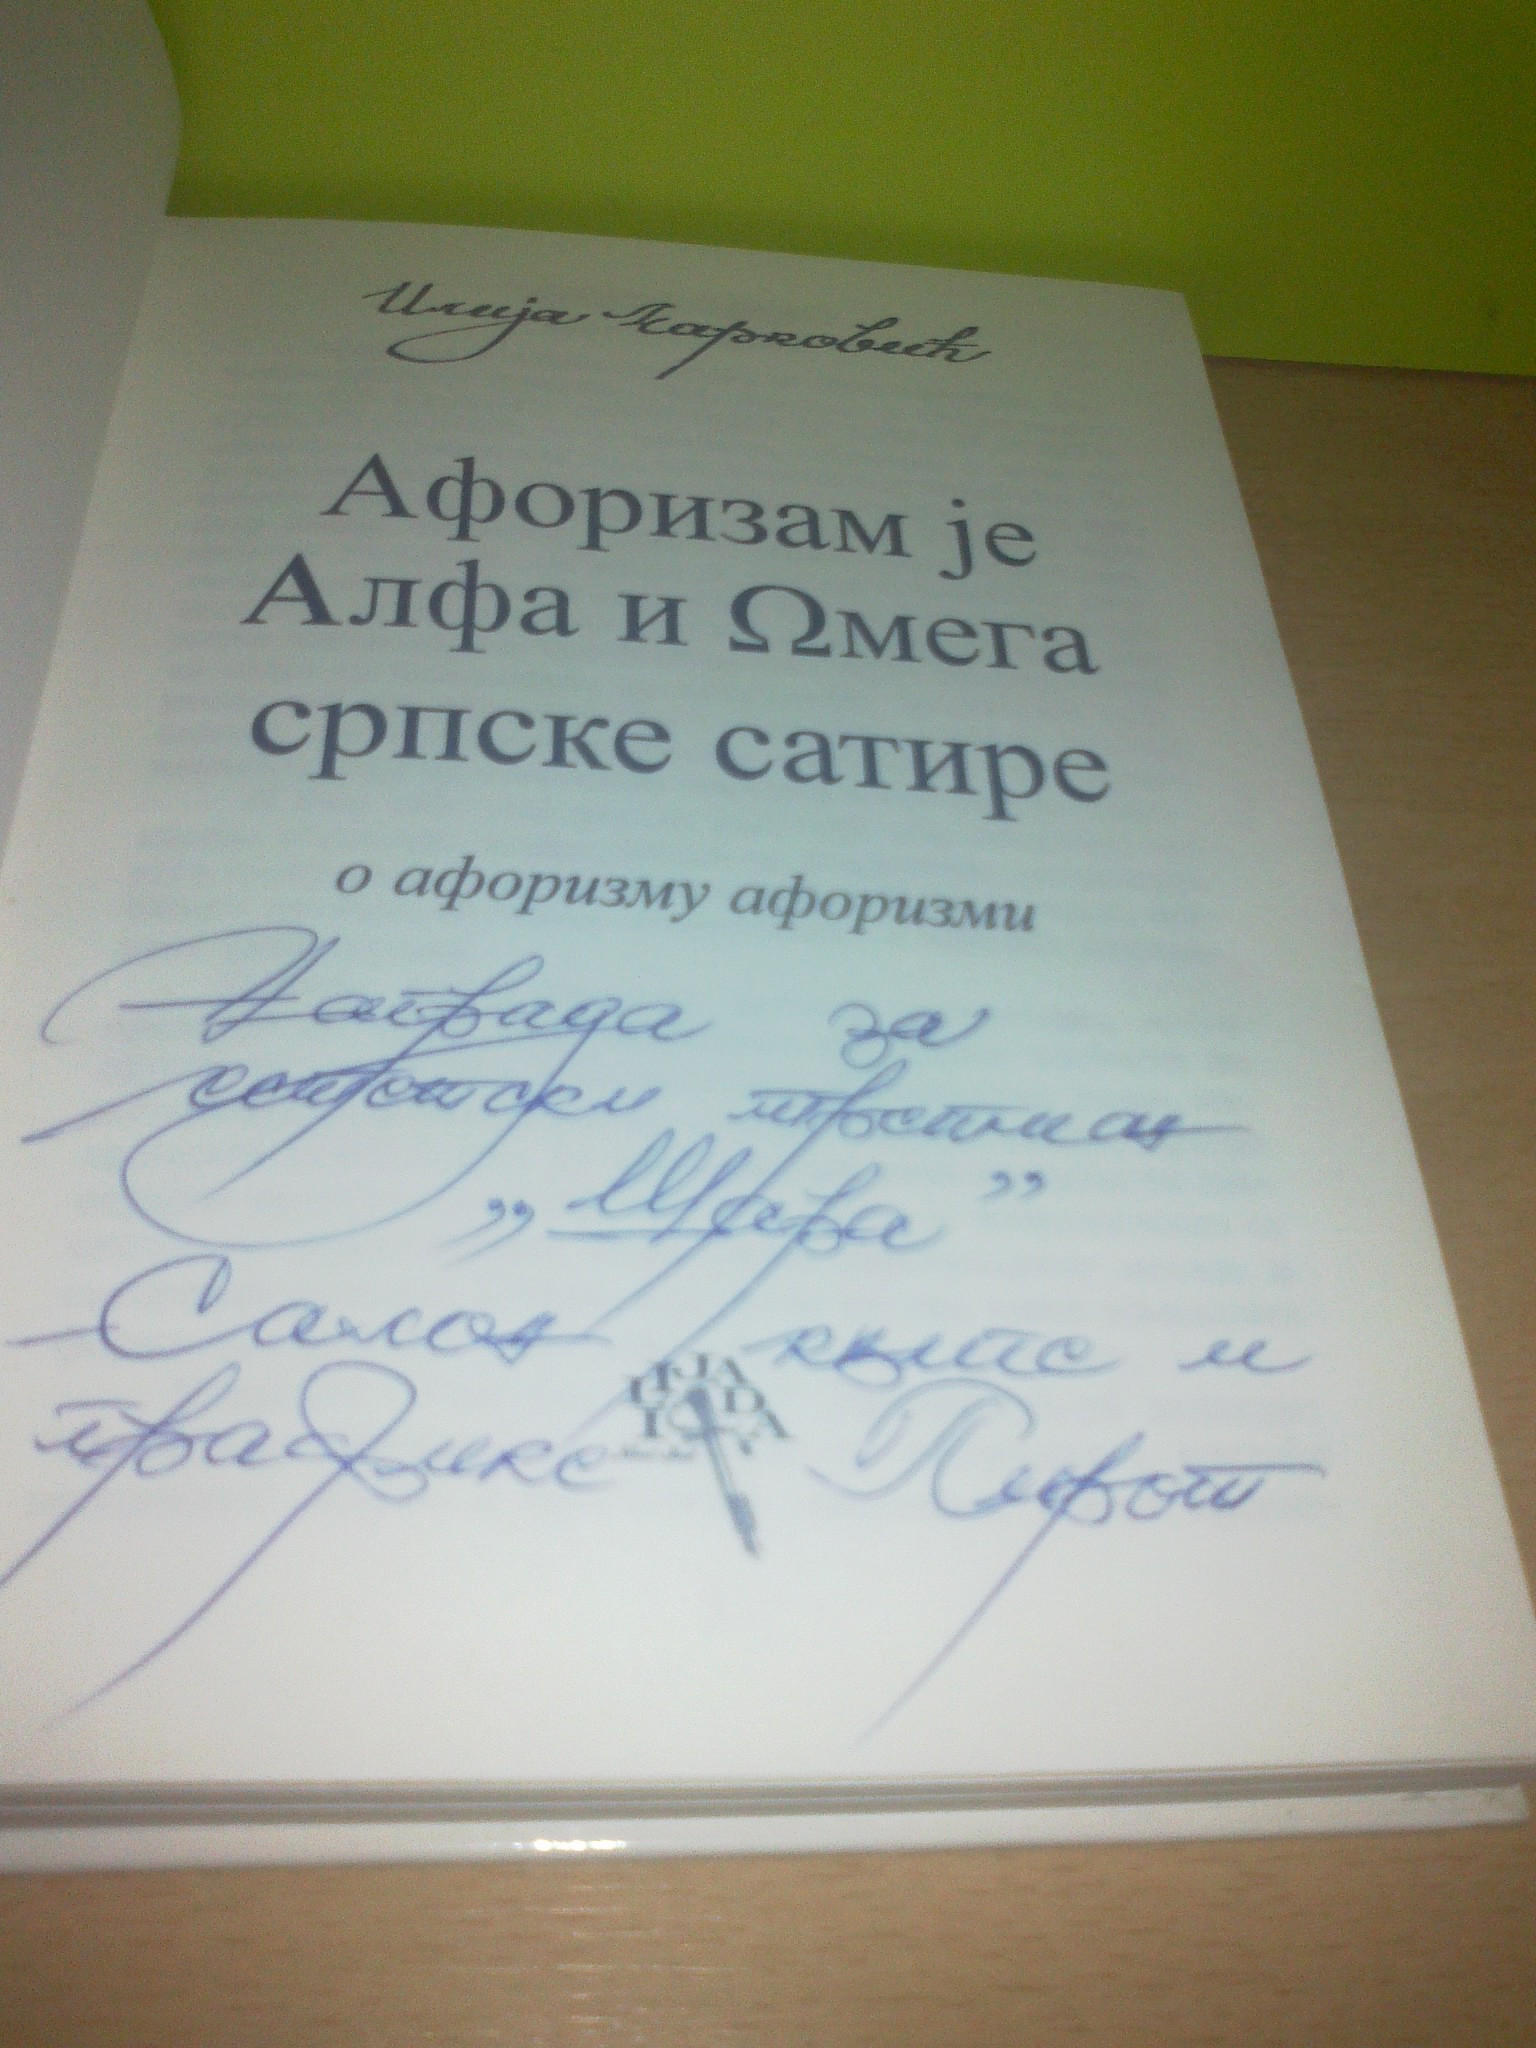 Илија Марковић
Афоризам је
Алфа и Ωмега
српске сатире
о афоризму афоризми
Награда за
сатирски
„Шара”
Салон књиге и
графике Пирот